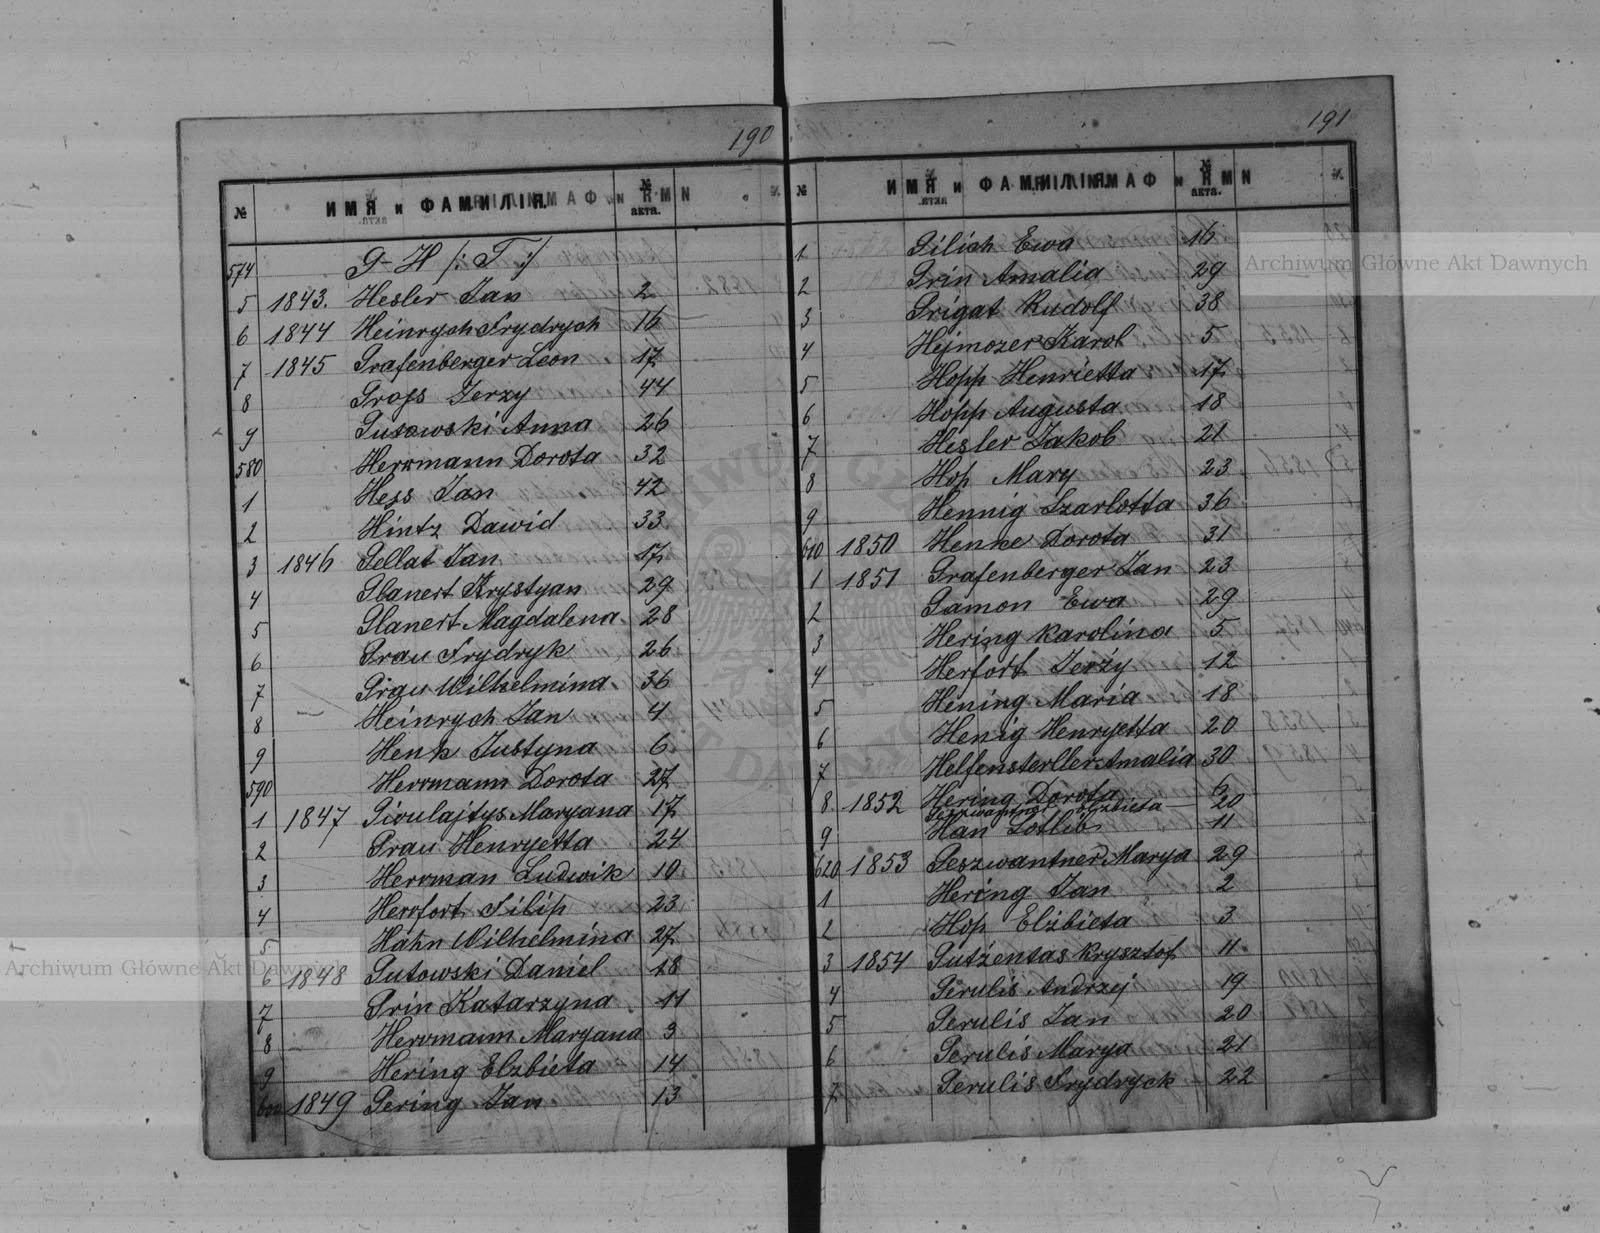 190
№ ИМЯ и ФАМИЛІЯ. № акта.
574 G-H /: T :/
5 1843. Hesler Jan 2
6 1844 Heinrych Frydrych 16
7 1845 Grafenberger Leon 17
8 Gross Jerzy 44
9 Gutowski Anna 26
580 Herrmann Dorota 32
1 Hess Jan 42
2 Hintz Dawid 33
3 1846 Gellat Jan 17
4 Glanert Krystyan 29
5 Glanert Magdalena 28
6 Grau Frydryk 26
7 Grau Wilhelmina 36
8 Heinrych Jan 4
9 Henk Justyna 6
590 Herrmann Dorota 27
1 1847 Giwulajtys Maryana 17
2 Grau Henryetta 24
3 Herrman Ludwik 10
4 Herrfort Filip 23
5 Hahn Wilhelmina 27
6 1848 Gutowski Daniel 18
7 Grin Katarzyna 11
8 Herrmann Maryana 3
9 Hering Elzbieta 14
600 1849 Gering Jan 13
191
№ ИМЯ и ФАМИЛІЯ. № акта.
1 Gilich Ewa 16
2 Grin Amalia 29
3 Grigat Rudolf 38
4 Hejmozer Karol 5
5 Hopp Henrietta 17
6 Hopp Augusta 18
7 Hesler Jakob 21
8 Hop Mary 23
9 Hennig Szarlotta 36
610 1850 Henke Dorota 31
1 1851 Grafenberger Jan 23
2 Gamon Ewa 29
3 Hering Karolina 5
4 Herfort Jerzy 12
5 Hening Maria 18
6 Henig Henryetta 20
7 Helfensterller Amalia 30
8 1852 Hering Dorota 6
Geszwantner Elzbieta 20
9 Han Gotlib 11
620 1853 Geszwantner Marya 29
1 Hering Jan 2
2 Hop Elżbieta 3
3 1854 Gutżentas Krysztof 11
4 Gerulis Andrzej 19
5 Gerulis Jan 20
6 Gerulis Marya 21
7 Gerulis Frydryck 22
Archiwum Główne Akt Dawnych
Archiwum Główne Akt Dawnych